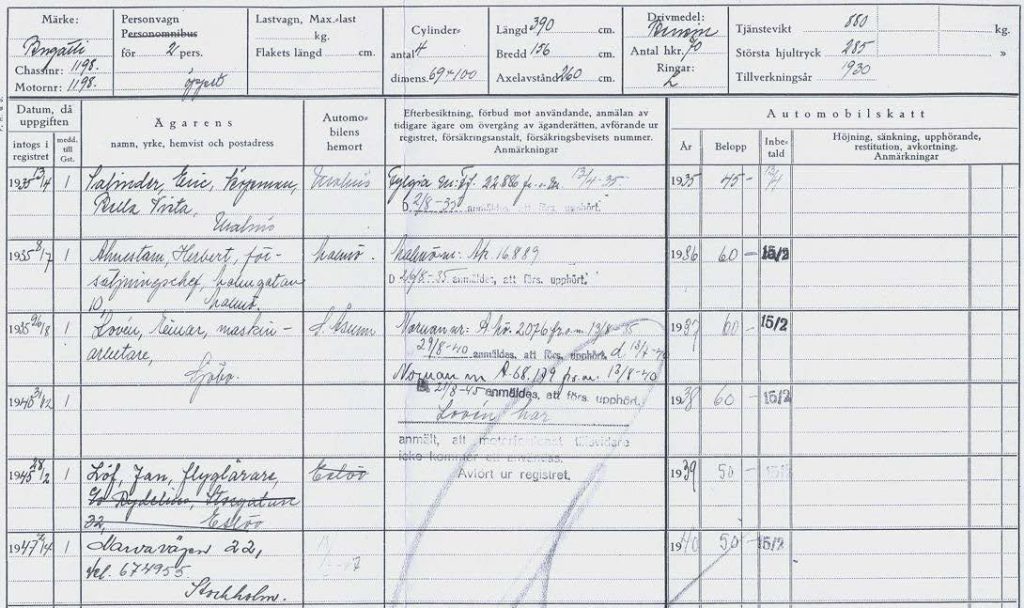 Märke:
Bugatti
Chassinr: 1198.
Motornr: 1198.
Personvagn
Personomnibus
för 2 pers.
öppet
Lastvagn, Max.-last
kg.
Flakets längd cm.
Cylinder-
antal 4
dimens. 69×100
Längd 390 cm.
Bredd 156 cm.
Axelavstånd 260 cm.
Drivmedel:
Bensin
Antal hkr. 70
Ringar:
L
Tjänstevikt 880 kg.
Största hjultryck 285 »
Tillverkningsår 1930
Datum, då uppgiften
intogs i registret
medd. till Gst.
Ägarens
namn, yrke, hemvist och postadress
Automo-
bilens
hemort
Efterbesiktning, förbud mot användande, anmälan av
tidigare ägare om övergång av äganderätten, avförande ur
registret, försäkringsanstalt, försäkringsbevisets nummer.
Anmärkningar
Automobilskatt
År
Belopp
Inbe-
tald
Höjning, sänkning, upphörande,
restitution, avkortning.
Anmärkningar
1935 13/4 1 Salinder, Eric, Köpman, Malmö Fylgia 22886 fr. o. m. 13/4-35. 1935 45 —
Bella Vista, D. 2/8-35 anmäldes, att förs. upphört.
Malmö
1935 8/7 1 Almestam, Herbert, för- Malmö. 16889 1936 60 — 15/2
säljningschef, D 26/8-35 anmäldes, att förs. upphört.
10, Malmö.
1935 1 Lovén, Einar, maskin- S. Åsum Norman nr: A 2076 fr. o. m. 13/8-35 1937 60 — 15/2
arbetare, 29/8-40 anmäldes, att förs. upphört. d 13/8-40
Sjöbo. Norman nr A-68.179 fr. o. m. 13/8-40
1940 31/12 1 21/8-45 anmäldes, att förs. upphört. 1938 60 — 15/2
Lovén har
anmält, att motorfordonet tillsvidare
icke kommer att användas.
1945 28/2 1 Löf, Jan, flyglärare, Eslöv Avfört ur registret. 1939 50 — 15/2
c/o Rydelius, Storgatan
32, Eslöv
1947 1 Narvavägen 22, 1940 50 — 15/2
tel. 674955
Stockholm.